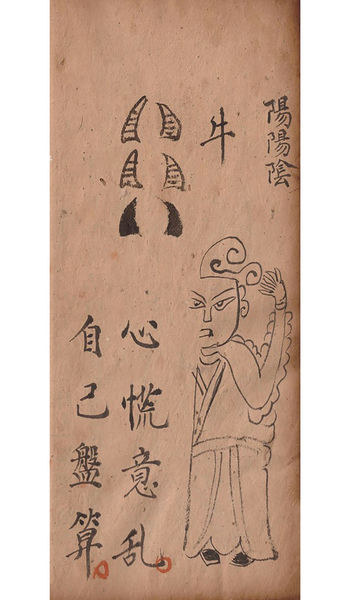 陽陽陰
牛
心慌意乱
自己盤算